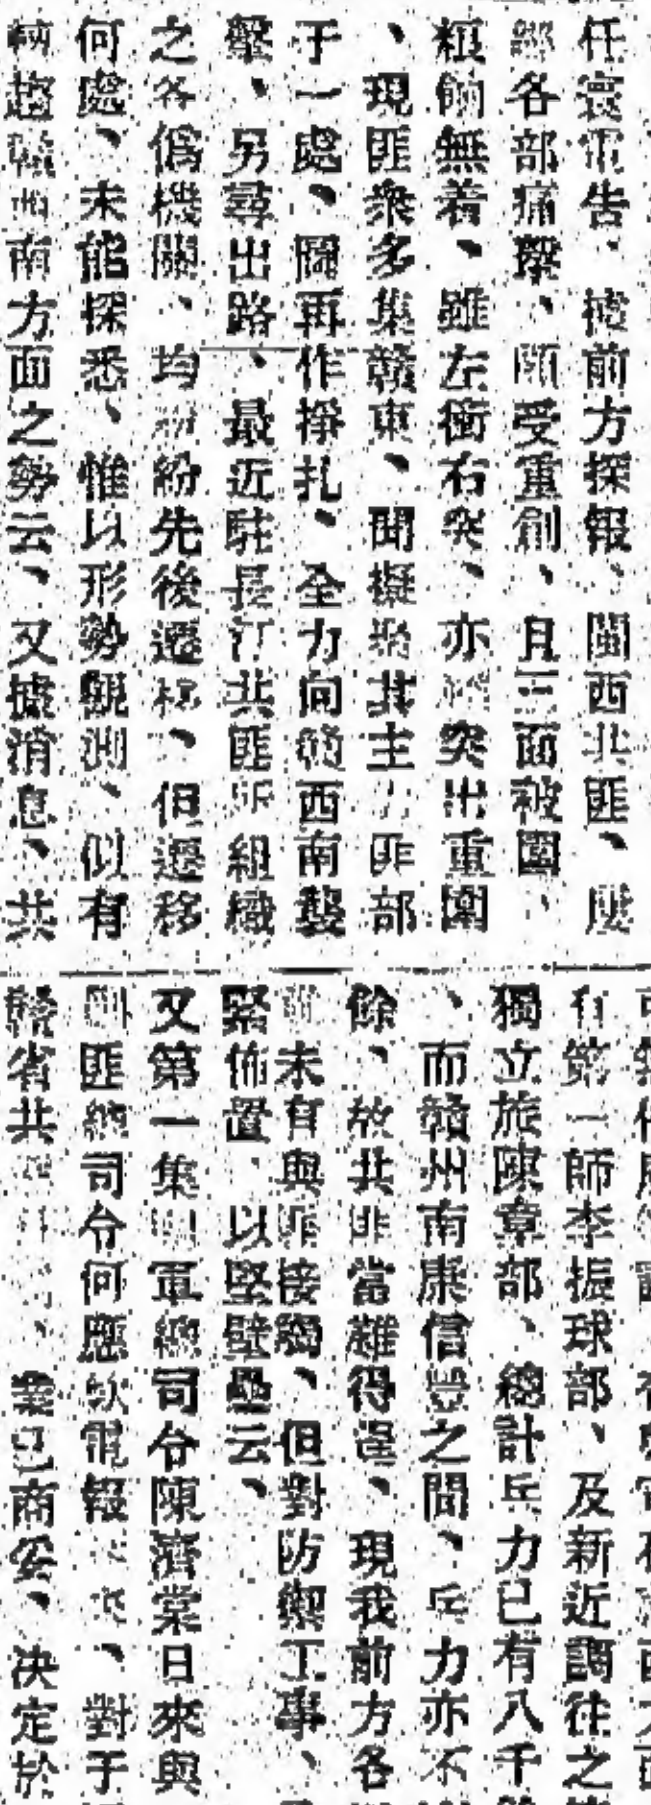 任寰電告、據前方探報、閩西共匪、屢
經各部痛擊、頗受重創、且三面被圍、
糧餉無着、雖左衝右突、亦突出重圍
、現匪衆多集贛東、聞擬其主匪部
于一處、圖再作掙扎、全力向贛西南襲
擊、另尋出路、最近駐長汀共匪所組織
之各僞機關、均紛紛先後遷移、但遷移
何處、未能探悉、惟以形勢觀測、似有
趨贛西南方面之勢云、又據消息、共
有第一師李振球部、及新近調往之
獨立旅陳章部、總計兵力已有八千
、而贛州南康信豐之間、兵力亦不
餘、故共匪當難得逞、現我前方各
未有與匪接觸、但對防禦工事、
緊佈置、以堅壁壘云、
又第一集團軍總司令陳濟棠日來與
剿匪總司令何應欽電報、對于
贛省共、業已商妥、決定於